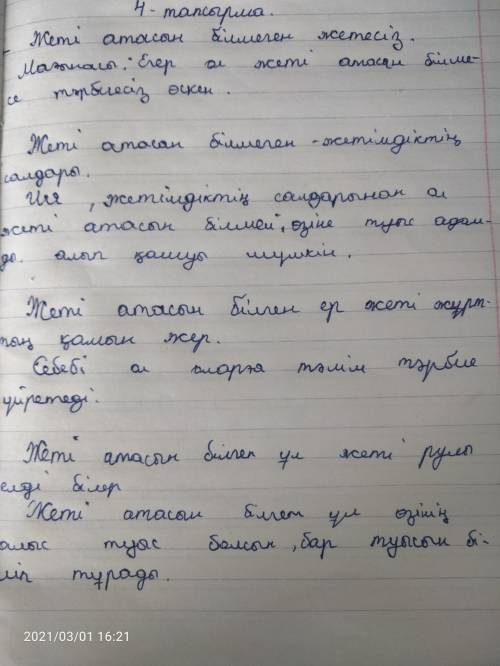 4-тапсырма.
Жеті атасын білмеген жетесіз.
Мағынасы: Егер ол жеті атасын білме-
се тәрбиесіз өскен.
Жеті атасан білмеген - жетімдіктің
салдары.
Ия, жетімдіктің салдарынан ол
жеті атасын білмей, өзіне туыс адам-
ды алып қашуы мүмкін.
Жеті атасын білген ер жеті жұрт-
тың қамын жер.
Себебі ол оларға тәлім тәрбие
үйретеді.
Жеті атасын білген ұл жеті рулы
елді білер
Жеті атасын білген ұл өзінің
алыс туыс болсын, бар туысын бі-
ліп тұрады.
2021/03/01 16:21